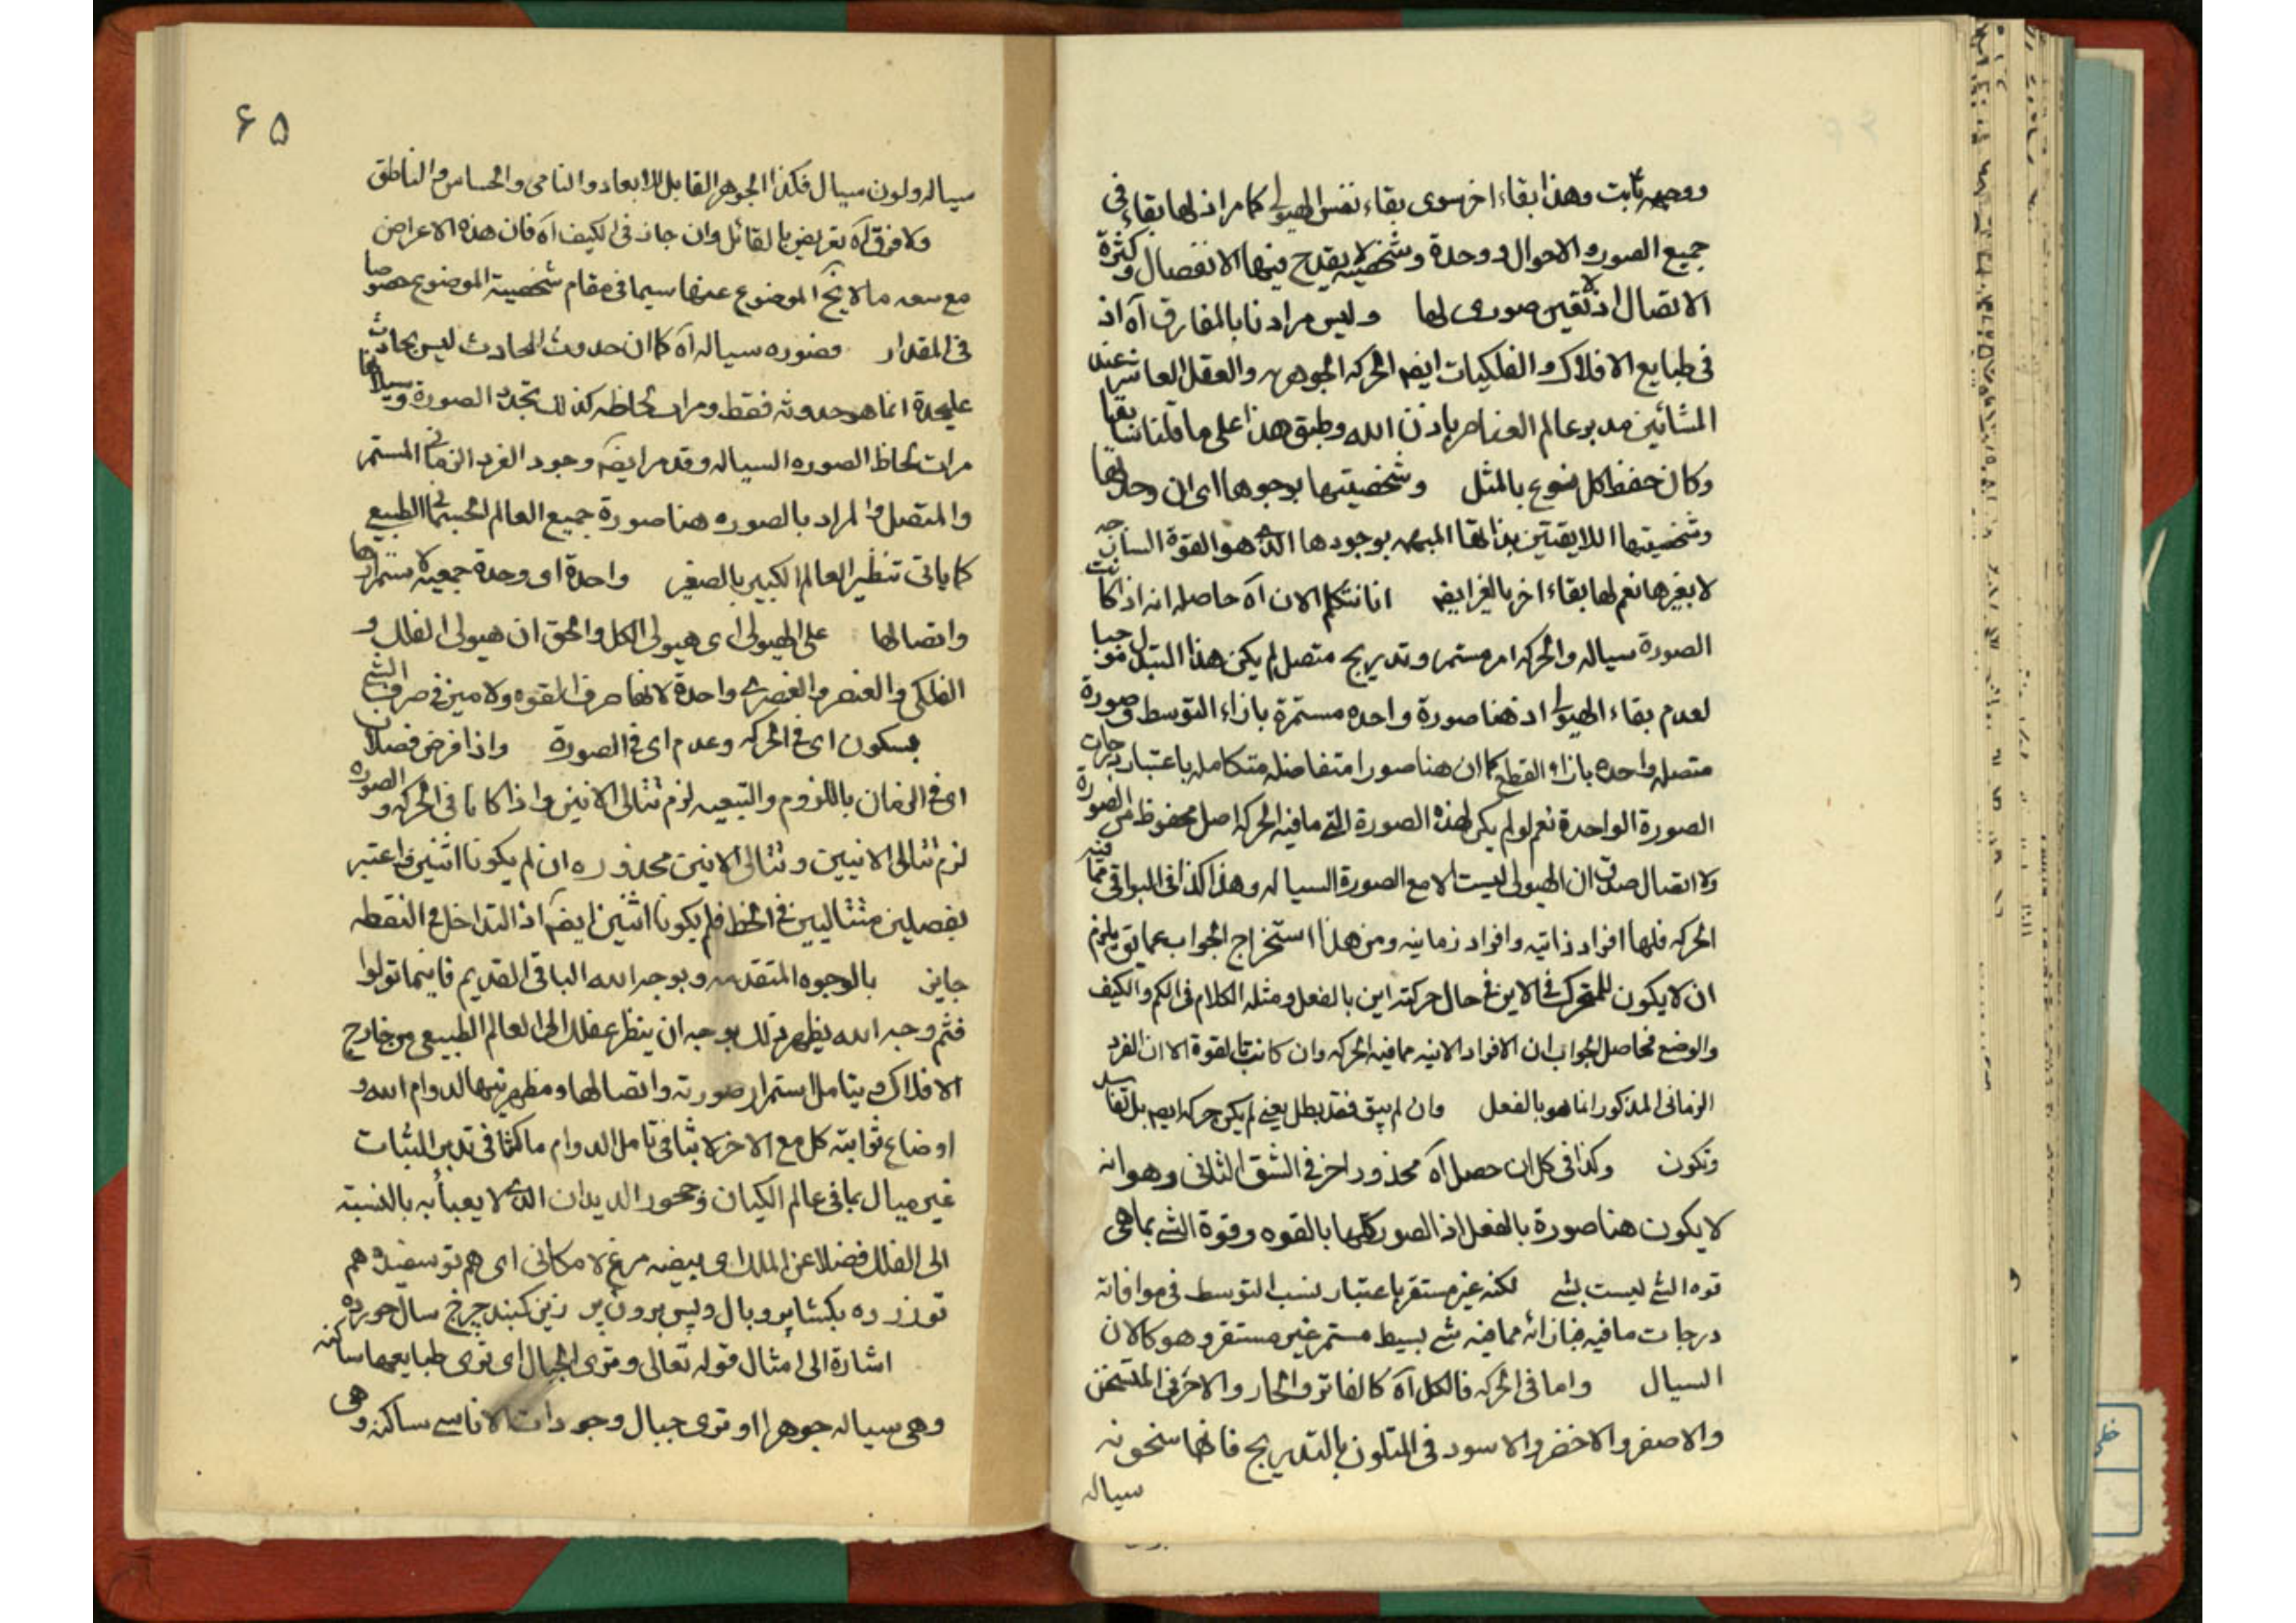 ووجهه ثابت وهذا بقاء اخر سوى بقاء نفس الهيولى كما مر اذ لها بقاء فى
جميع الصور والاحوال ووحدة وشخصية لا يقدح فيها الانفصال وكثرة
الاتصال اذ لا تعين صورى لها وليس مرادنا بالمفارق آه اذ
فى طبايع الافلاك والفلكيات ايضا الحركه الجوهريه والعقل العاشر عند
المشائين مدبر عالم العناصر باذن الله وطبق هذا على ما قلنا سابقا
وكان حفظ كل نوع بالمثل وشخصيتها بوجوهها اى ان وحدتها
وشخصيتها اللايقتين بذاتها المبهمه بوجودها الذى هو القوة الساذجه
لا بغيرها نعم لها بقاء اخر بالغير ايضا انا نتكلم الان آه حاصله انه اذ كانت
الصورة سياله والحركه امر مستمر وتدريج متصل لم يكن هذا التبدل موجبا
لعدم بقاء الهيولى اذ هنا صورة واحده مستمرة بازاء التوسط وصورة
متصله واحده بازاء القطع كما ان هنا صورا متفاضله متكامله باعتبار درجات
الصورة الواحدة نعم لو لم يكن لهذه الصورة التى ما فيه الحركه اصل محفوظ من الصورة
ولا اتصال صدق ان الهيولى ليست الا مع الصورة السياله وهذا كذا فى البواقى مما فيه
الحركه فلها افراد ذاتيه وافراد زمانيه ومن هذا استخراج الجواب عما تق يلزم
ان لا يكون للمتحرك فى الاين فى حال حركته اين بالفعل ومثله الكلام فى الكم والكيف
والوضع فحاصل الجواب ان الافراد الانيه مما فيه الحركه وان كانت بالقوة الا ان الفرد
الزمانى المذكور انما هو بالفعل وان لم يبق فقد بطل يعنى لم يكن حركه ايضا بل تفاسد
وتكون وكذا فى كل ان حصل آه محذور اخر فى الشق الثانى وهو انه
لا يكون هنا صورة بالفعل اذ الصور كلها بالقوه وقوة الشى بما هى
قوه الشى ليست بشى لكنه غير مستقر باعتبار نسب التوسط فى موافاته
درجات ما فيه فبازائه مما فيه شى بسيط مستمر غير مستقر وهو كالان
السيال واما فى الحركه فالكل آه كالفاتر والحار والاحر فى المتسخن
والاصفر والاخضر والاسود فى المتلون بالتدريج فانها سخونه
سياله
۶۵
سياله ولون سيال فكذا الجوهر القابل للابعاد والنامى والحساس والناطق
ولا فرق آه تعريض بالقائل وان جاز فى الكيف آه فان هذه الاعراض
مع سعه ما لا ينح الموضوع عنها سيما فى مقام شخصية الموضوع خصوصا
فى المقدار فصوره سياله آه كما ان حدوث الحادث ليس بحادث
عليحدة انما هو حدوثه فقط ومرات لحاظه كذلك تجدد الصورة وسيلانها
مرات لحاظ الصوره السياله وقد مر ايضا وجود الفرد الزمانى المستمر
والمتصل والمراد بالصوره هنا صورة جميع العالم الجسمانى الطبيعى
كما ياتى تنظير العالم الكبير بالصغير واحدة او وحدة جمعية لاستمرارها
واتصالها على الهيولى اى هيولى الكل والحق ان هيولى الفلك و
الفلكى والعنصر والعنصرى واحدة لانها صرف القوه ولا ميز فى صرف الشى
بسكون اى فى الحركه وعدم اى فى الصورة واذا فرض فصلان
اى فى الزمان باللزوم والتبعيه لزم تتالى الانين واذا كانا فى الحركه والصوره
لزم تتالى الانيين وتتالى الانين محذوره ان لم يكونا اثنين واعتبر
بفصلين متتاليين فى الخط فلم يكونا اثنين ايضا اذ التداخل فى النقطه
جايز بالوجوه المتقدمه وبوجه الله الباقى القديم فاينما تولوا
فثم وجه الله يظهر ذلك بوجه ان ينظر عقلك الى العالم الطبيعى من خارج
الافلاك ويتامل استمرار صورته واتصالها ومظهريتها لدوام الله و
اوضاع ثوابته كل مع الاخر لا بثا فى تامل الدوام ماكثا فى تدبر الثبات
غير مبال بما فى عالم الكيان وجحور الديدان الذى لا يعبأ به بالنسبة
الى الفلك فضلا عن الملك اى بيضه مرغ لا مكانى اى هم تو سفيده هم
تو زرده بكشا پر وبال وپس برون پر زين كنبد چرخ سال خورده
اشارة الى امثال قوله تعالى وترى الجبال اى ترى طبايعها ساكنه
وهى سياله جوهرا او ترى جبال وجودات الاناسى ساكنه وهى